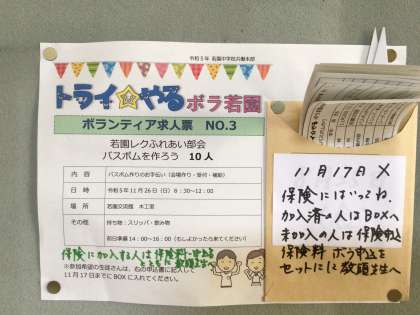 令和5年 若園中学校共働本部
トライ☆やる ボラ若園
ボランティア求人票 NO.3
若園レクふれあい部会
バスボムを作ろう 10人
内容 バスボム作りのお手伝い（会場作り・受付・補助）
日時 令和5年11月26日（日）8：30～12：00
場所 若園交流館 木工室
その他 持ち物：スリッパ・飲み物
前日準備14：00～16：00（もしよかったら来てください）
保険に加入する人は保険料・申込
とともに教頭先生へ
※参加希望の生徒さんは、右の申込書に記入して
11月17日までにBOXに入れてください。
11月17日〆
保険にはいってね。
加入済の人はBOXへ
未加入の人は保険申込
保険料 ボラ申込を
セットにして教頭先生へ